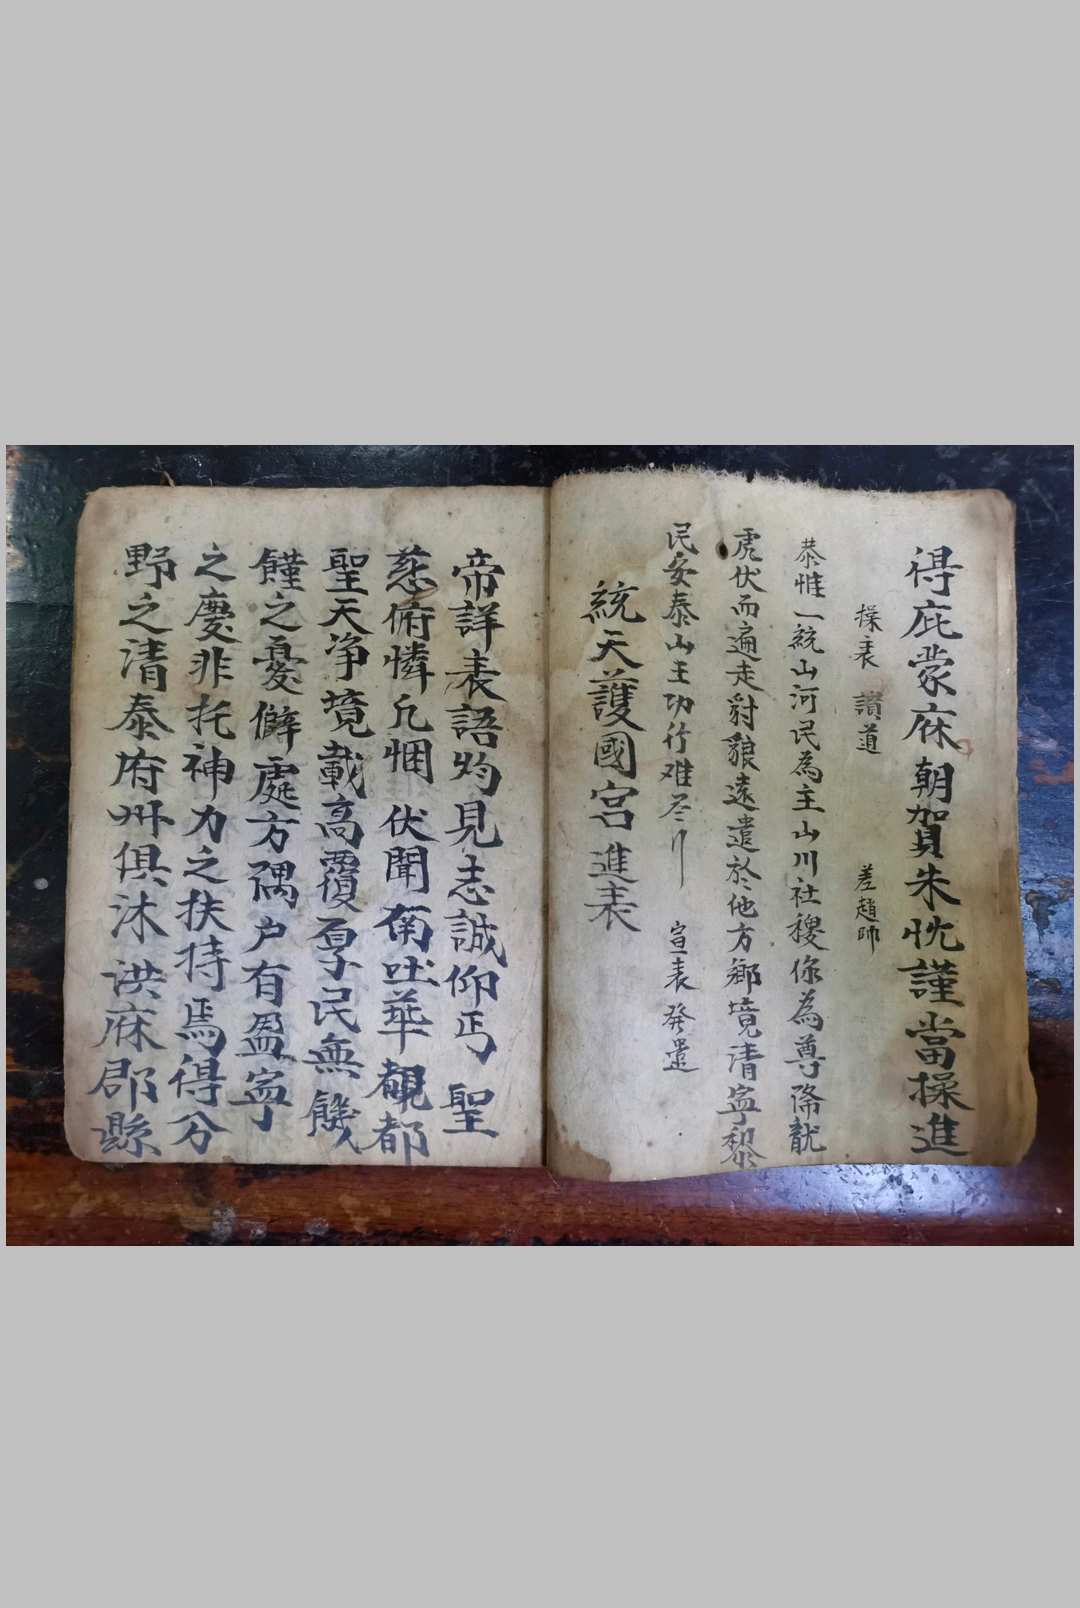 得庇蒙庥朝賀朱忱謹當操進
操表　讚道　差趙帥
恭惟一統山河民為主山川社稷你為尊降龍
虎伏而遍走豺狼遠遣於他方鄉境清寍黎
民安泰山王功行难尽　宣表發遣
統天護國宮進表
帝詳表語灼見志誠仰丐　聖
慈俯憐凡悃　伏聞南吐華觀都
聖天净境載高覆厚民無饑
饉之憂僻處方隅户有盈寍
之慶非托神力之扶持焉得分
野之清泰府州俱沐洪庥郡縣